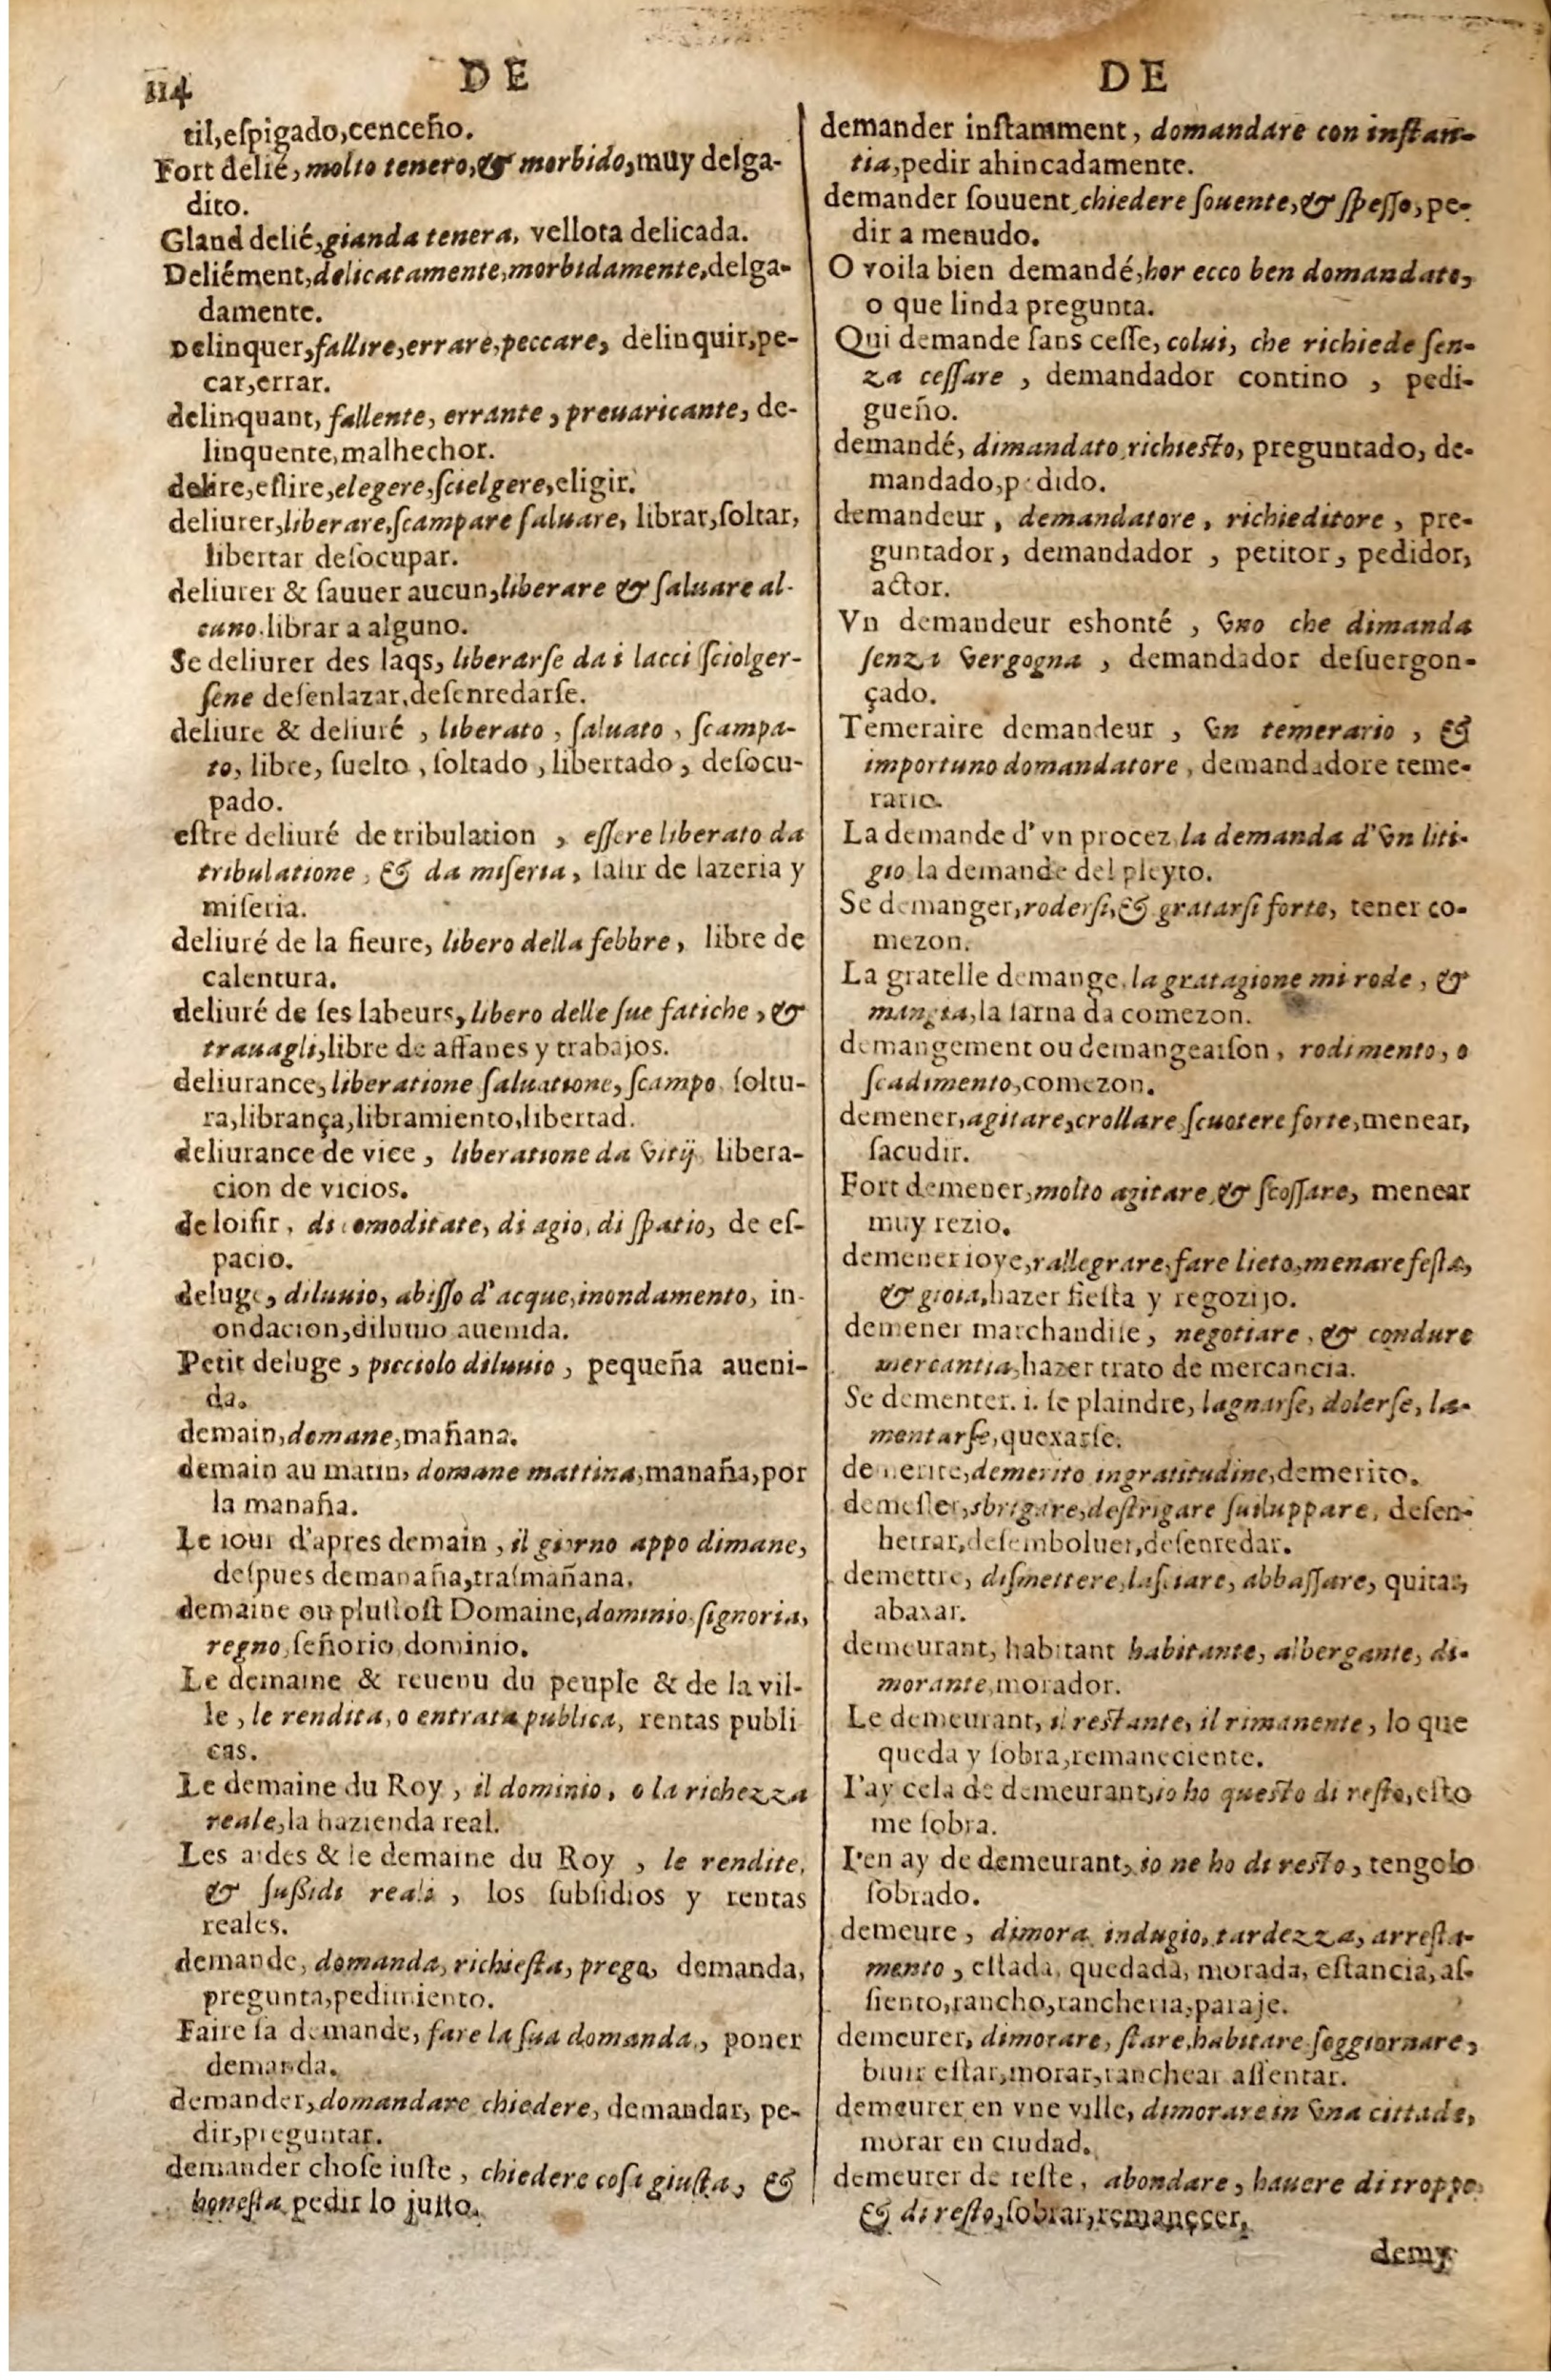 114
DE
DE
til,eſpigado,cenceño.
Fort delié, molto tenero,& morbido,muy delga-
dito.
Gland delié,gianda tenera, vellota delicada.
Deliément,delicatamente,morbidamente,delga-
damente.
Delinquer,fallire,errare,peccare, delinquir,pe-
car,errar.
delinquant, fallente, errante, preuaricante, de-
linquente,malhechor.
delire,eſlire,elegere,ſcielgere,eligir.
deliurer,liberare,ſcampare ſaluare, librar,ſoltar,
libertar deſocupar.
deliurer & ſauuer aucun,liberare & ſaluare al-
cuno.librar a alguno.
Se deliurer des laqs, liberarſe da i lacci ſciolger-
ſene deſenlazar,deſenredarſe.
deliure & deliuré, liberato, ſaluato, ſcampa-
to, libre, ſuelto, ſoltado, libertado, deſocu-
pado.
eſtre deliuré de tribulation, eſſere liberato da
tribulatione, & da miſeria, ſalir de lazeria y
miſeria.
deliuré de la fieure, libero della febbre, libre de
calentura.
deliuré de ſes labeurs, libero delle ſue fatiche, &
trauagli,libre de affanes y trabajos.
deliurance, liberatione ſaluatione, ſcampo, ſoltu-
ra,librança,libramiento,libertad.
deliurance de vice, liberatione da vitij, libera-
cion de vicios.
de loiſir, di comoditate, di agio, di ſpatio, de eſ-
pacio.
deluge, diluuio, abiſſo d'acque,inondamento, in-
ondacion,diluuio auenida.
Petit deluge, picciolo diluuio, pequeña aueni-
da.
demain,domane,mañana.
demain au matin, domane mattina,manaña,por
la manaña.
Le iour d'apres demain, il giorno appo dimane,
deſpues demanaña,traſmañana.
demaine ou pluſtoſt Domaine,dominio,ſignoria,
regno,ſeñorio,dominio.
Le demaine & reuenu du peuple & de la vil-
le, le rendita, o entrata publica, rentas publi
cas.
Le demaine du Roy, il dominio, o la richezza
reale,la hazienda real.
Les aides & le demaine du Roy, le rendite,
& ſuſsidi reali, los ſubſidios y rentas
reales.
demande, domanda, richieſta, prego, demanda,
pregunta,pedimiento.
Faire ſa demande, fare la ſua domanda, poner
demanda.
demander,domandare chiedere, demandar, pe-
dir,preguntar.
demander choſe iuſte, chiedere coſa giuſta, &
honeſta pedir lo juſto.
demander inſtamment, domandare con inſtan-
tia,pedir ahincadamente.
demander ſouuent,chiedere ſouente,& ſpeſſo, pe-
dir a menudo.
O voila bien demandé,hor ecco ben domandato,
o que linda pregunta.
Qui demande ſans ceſſe, colui, che richiede ſen-
za ceſſare, demandador contino, pedi-
gueño.
demandé, dimandato,richieſto, preguntado, de-
mandado,pedido.
demandeur, demandatore, richieditore, pre-
guntador, demandador, petitor, pedidor,
actor.
Vn demandeur eshonté, vno che dimanda
ſenza vergogna, demandador deſuergon-
çado.
Temeraire demandeur, vn temerario, &
importuno domandatore, demandadore teme-
rario.
La demande d'vn procez,la demanda d'vn liti-
gio,la demande del pleyto.
Se demanger,roderſi,& gratarſi forte, tener co-
mezon.
La gratelle demange,la gratagione mi rode, &
mangia,la ſarna da comezon.
demangement ou demangeaiſon, rodimento, o
ſcadimento,comezon.
demener,agitare,crollare,ſcuotere forte,menear,
ſacudir.
Fort demener,molto agitare,& ſcoſſare, menear
muy rezio.
demener ioye,rallegrare,fare lieto,menare feſta,
& gioia,hazer fieſta y regozijo.
demener marchandiſe, negotiare, & condure
mercantia,hazer trato de mercancia.
Se dementer. i. ſe plaindre, lagnarſe, dolerſe, la-
mentarſe,quexarſe.
demerite,demerito ingratitudine,demerito.
demeſler,sbrigare,deſtrigare ſuiluppare, deſen-
hetrar,deſemboluer,deſenredar.
demettre, diſmettere,laſciare, abbaſſare, quitar,
abaxar.
demeurant, habitant habitante, albergante, di-
morante,morador.
Le demeurant, il reſtante, il rimanente, lo que
queda y ſobra,remaneciente.
I'ay cela de demeurant,io ho queſto di reſto,eſto
me ſobra.
I'en ay de demeurant, io ne ho di reſto, tengolo
ſobrado.
demeure, dimora, indugio, tardezza, arreſta-
mento, eſtada, quedada, morada, eſtancia, aſ-
ſiento,rancho,rancheria,paraje.
demeurer, dimorare, ſtare,habitare ſoggiornare,
biuir eſtar,morar,ranchear aſſentar.
demeurer en vne ville, dimorare in vna cittade,
morar en ciudad.
demeurer de reſte, abondare, hauere di troppo
& di reſto,ſobrar,remançcer,
demy